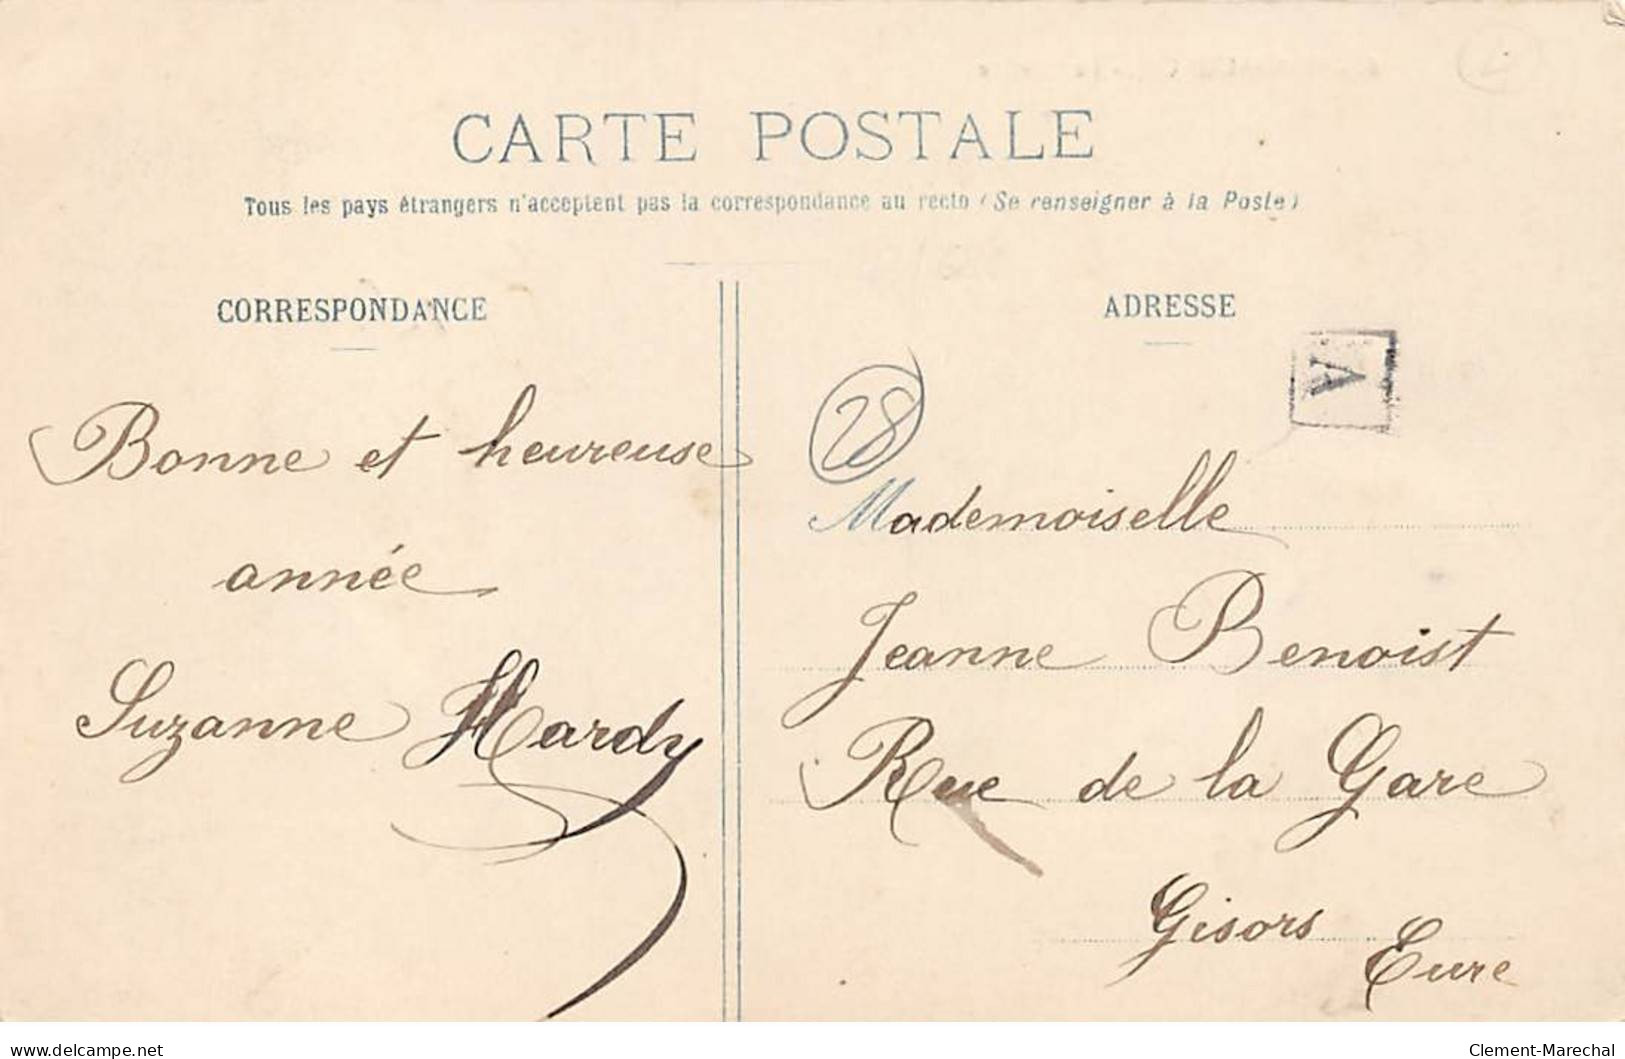 CARTE POSTALE
Tous les pays étrangers n'acceptent pas la correspondance au recto (Se renseigner à la Poste)
CORRESPONDANCE
Bonne et heureuse
année
Suzanne Hardy
ADRESSE
A
28
Mademoiselle
Jeanne Benoist
Rue de la Gare
Gisors
Eure
delcampe.net
Clement-Marechal